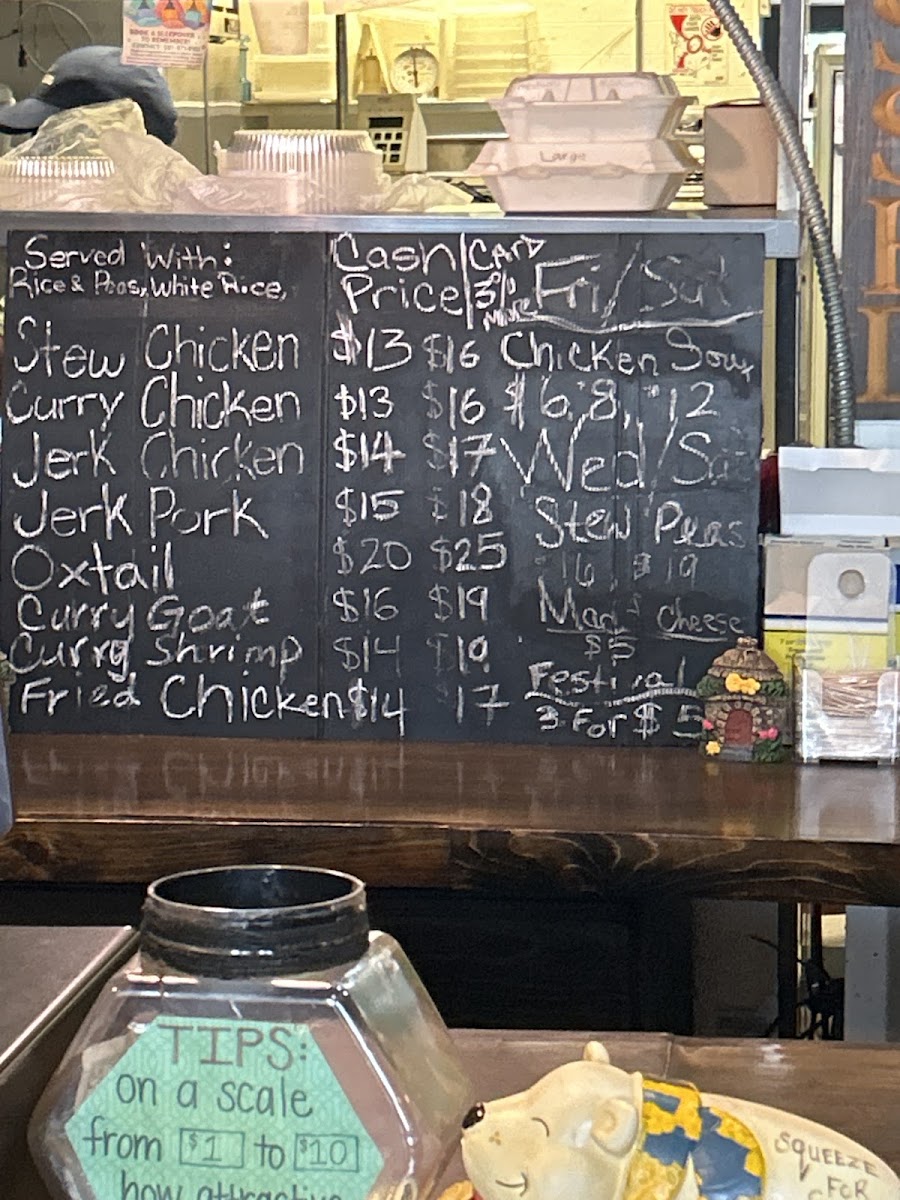 Large
Served With:
Rice & Peas, White Rice,
Cash Price
Card 3% More
Stew Chicken $13 $16
Curry Chicken $13 $16
Jerk Chicken $14 $17
Jerk Pork $15 $18
Oxtail $20 $25
Curry Goat $16 $19
Curry Shrimp $14 $19
Fried Chicken $14 17
Fri/Sat
Chicken Soup
$6, 8, $12
Wed/Sat
Stew Peas
16, $19
Mac & Cheese
$5
Festival
3 For $5
TIPS:
on a scale
from $1 to $10
how attractive
SQUEEZE
FOR